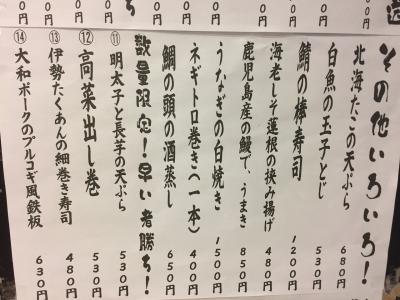 その他いろいろ!
北海たこの天ぷら 680円
白魚の玉子とじ 530円
鯖の棒寿司 1200円
海老しそ蓮根の挟み揚げ
鹿児島産の鰻で、うまき 850円
うなぎの白焼き 1500円
ネギトロ巻き(一本) 400円
鯛の頭の酒蒸し 650円
数量限定!早い者勝ち!
⑪ 明太子と長芋の天ぷら 530円
⑫ 高菜出し巻 530円
⑬ 伊勢たくあんの細巻き寿司 480円
⑭ 大和ポークのプルコギ風鉄板 630円